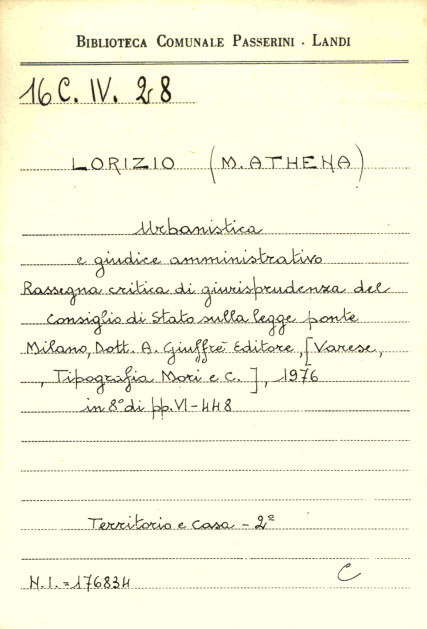 BIBLIOTECA COMUNALE PASSERINI - LANDI
16 C. IV. 28
LORIZIO (M. ATHENA)
Urbanistica
e giudice amministrativo
Rassegna critica di giurisprudenza del
Consiglio di Stato sulla legge ponte
Milano, Dott. A. Giuffrè Editore, [Varese,
, Tipografia Mori e C. ], 1976
in 8° di pp. VI-448
Territorio e casa - 2ª
N.I. = 176834
C